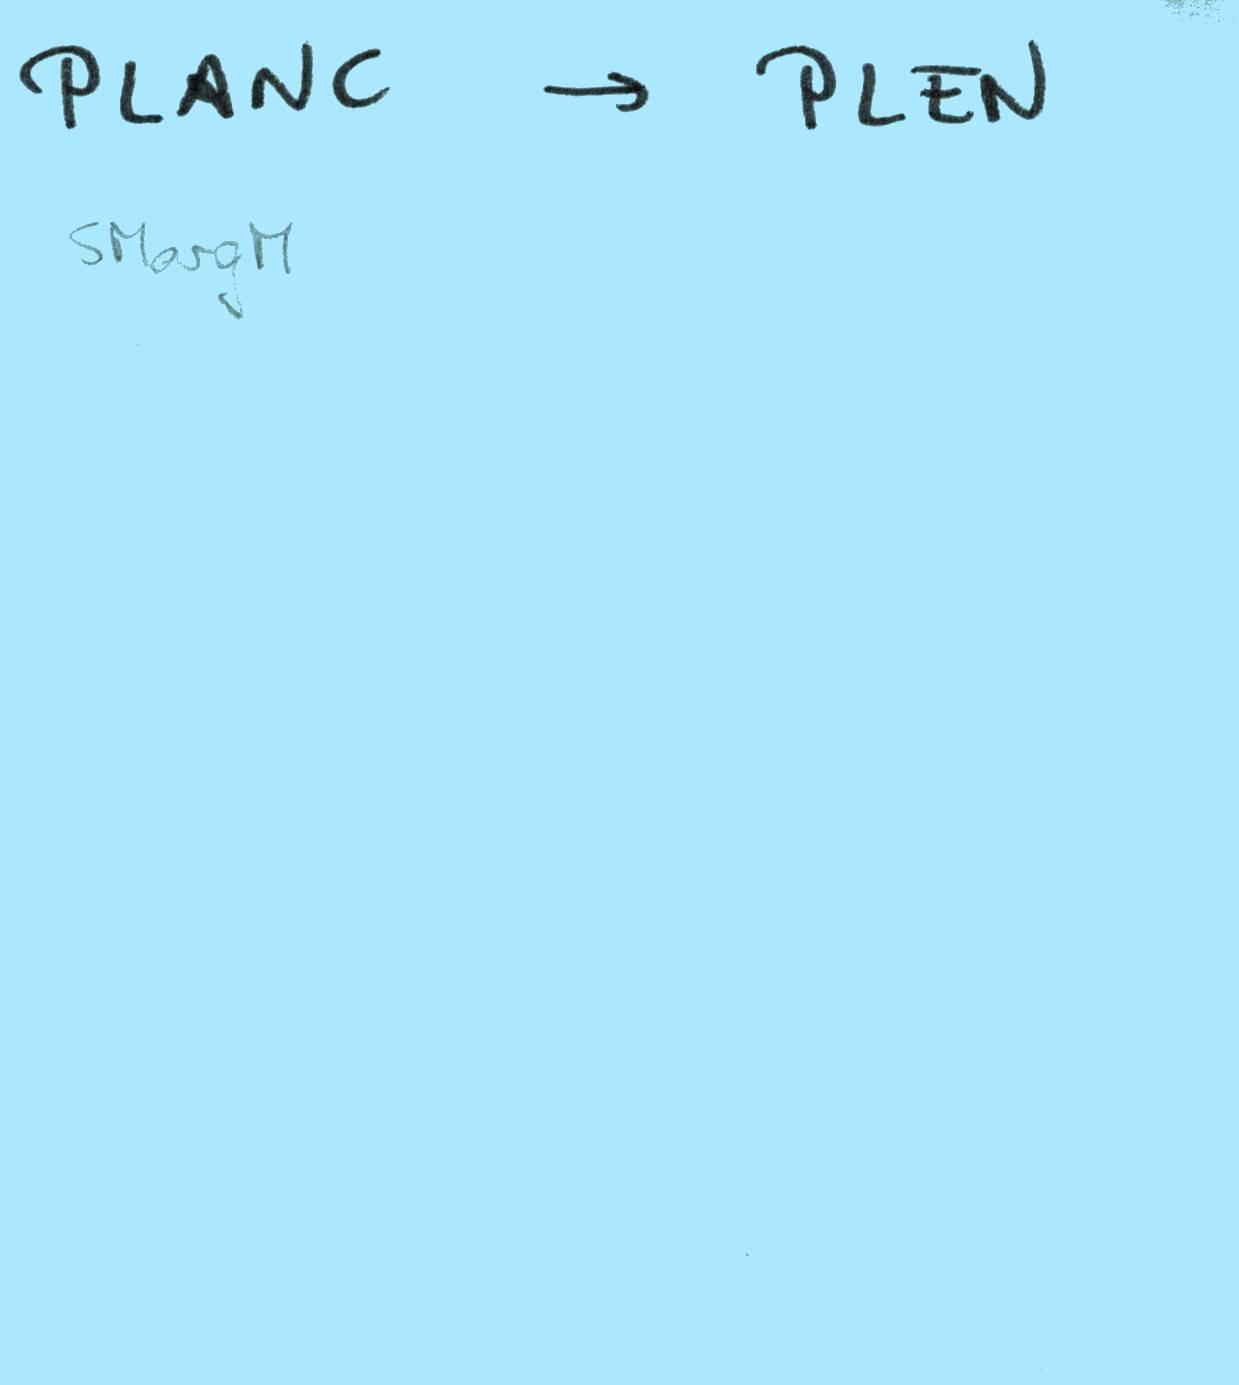 PLANC → PLEN
SMargM